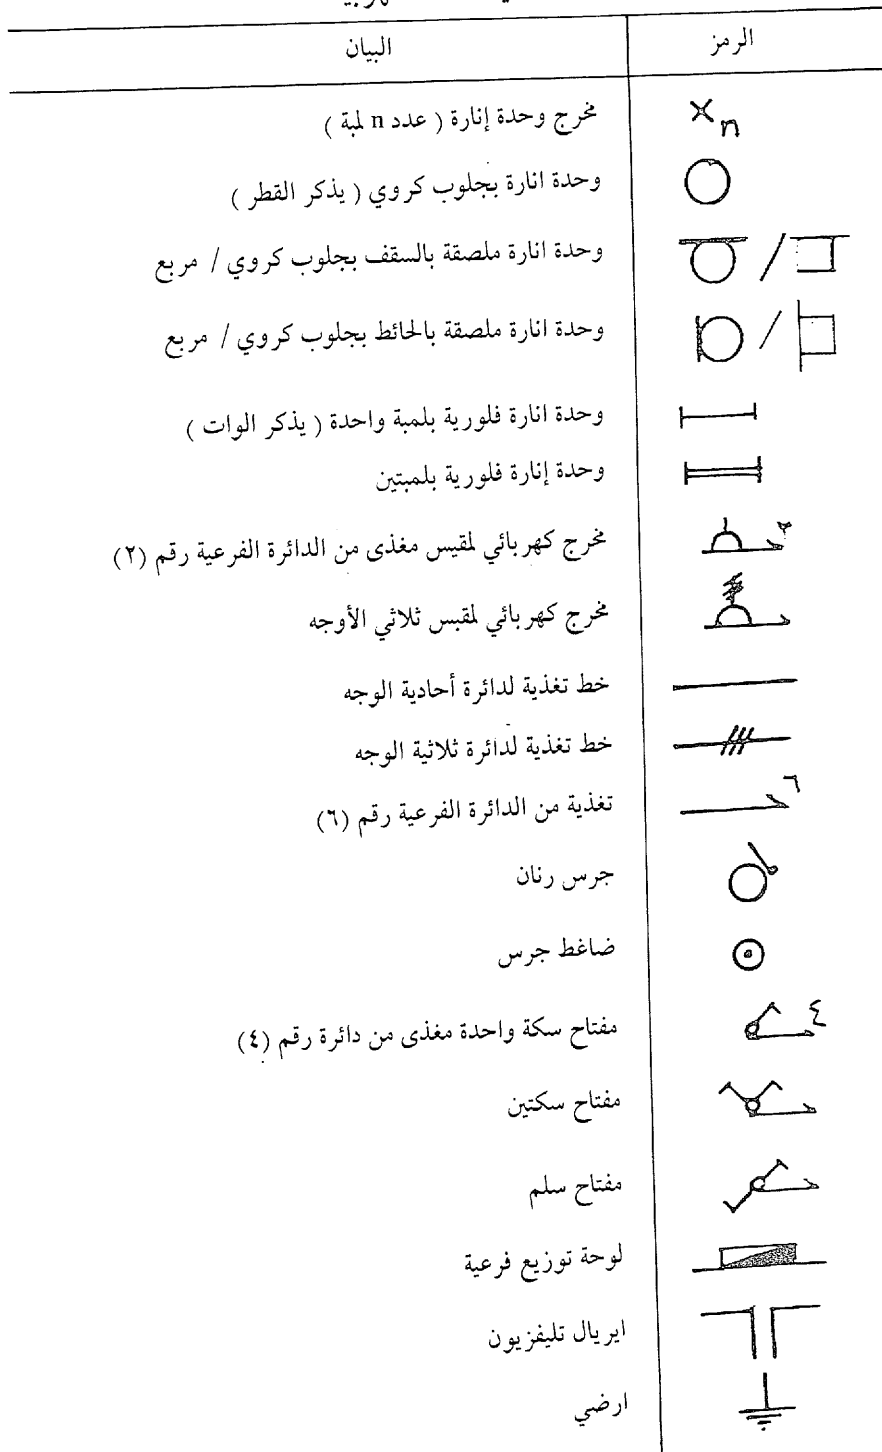 الرمز
البيان
x n
مخرج وحدة إنارة ( عدد n لمبة )
وحدة انارة بجلوب كروي ( يذكر القطر )
وحدة انارة ملصقة بالسقف بجلوب كروي / مربع
/
وحدة انارة ملصقة بالحائط بجلوب كروي / مربع
/
وحدة انارة فلورية بلمبة واحدة ( يذكر الوات )
وحدة إنارة فلورية بلمبتين
٢
مخرج كهربائي لمقبس مغذى من الدائرة الفرعية رقم (٢)
مخرج كهربائي لمقبس ثلاثي الأوجه
خط تغذية لدائرة أحادية الوجه
خط تغذية لدائرة ثلاثية الوجه
٦
تغذية من الدائرة الفرعية رقم (٦)
جرس رنان
ضاغط جرس
٤
مفتاح سكة واحدة مغذى من دائرة رقم (٤)
مفتاح سكتين
مفتاح سلم
لوحة توزيع فرعية
ايريال تليفزيون
ارضي